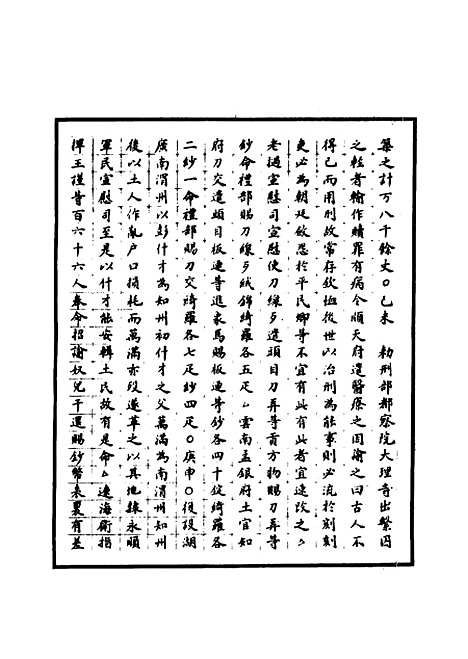 築之計丁八千餘丈○己未　勅刑部都察院大理寺出繫囚
之輕者輸作贖罪有病令順天府遣醫療之因諭之曰古人不
得已而用刑故常存欽恤後世以治刑為能事則必流於刻刻
吏必為朝廷斂怨於平民卿等不宜有此有此者宜速改之△
老撾宣慰司宣慰使刀線歹遣頭目刀弄等貢方物賜刀弄等
鈔命禮部賜刀線歹絨錦綺羅各五疋△雲南孟艮府土官知
府刀交遣頭目板連等進象馬賜板連等鈔各四十錠綺羅各
二紗一命禮部賜刀交綺羅各七疋紗四疋○庚申○復設湖
廣南渭州以彭什才為知州初什才之父萬滿為南渭州知州
後以土人作亂戶口損耗而萬滿亦歿遂革之以其地隸永順
軍民宣慰司至是以什才能安輯土民故有是命△遼海衛指
揮王謹等百六十六人奉命招諭奴兒干還賜鈔幣表裏有差